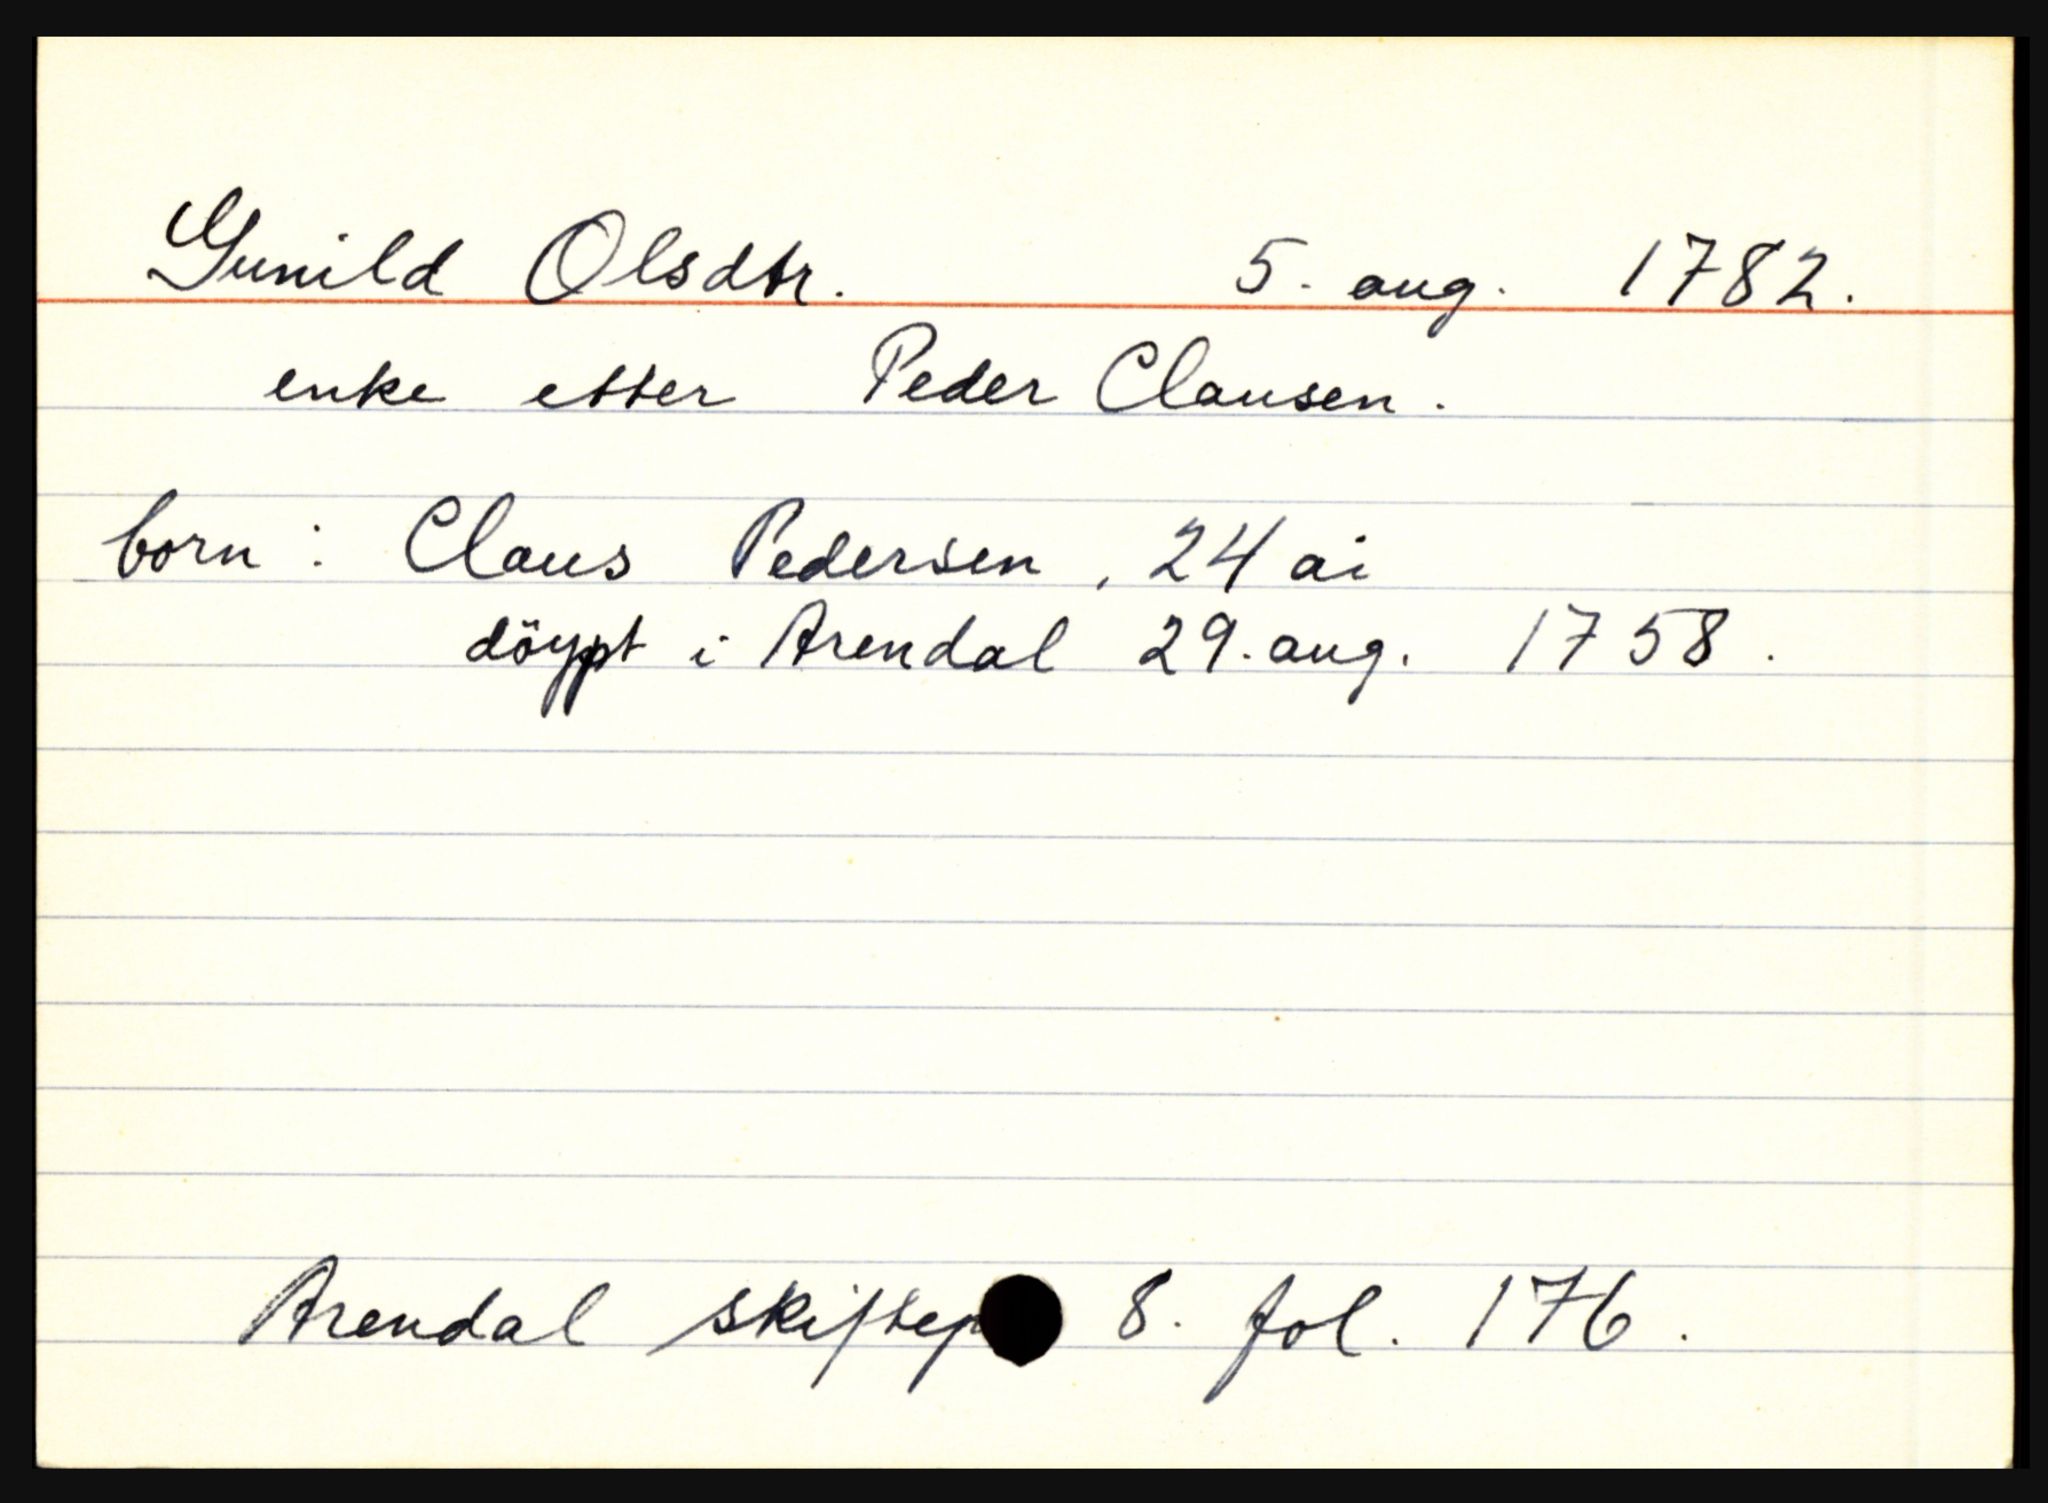 Gunild Olsdtr. 5. aug. 1782.
enke etter Peder Clausen.
born: Claus Pedersen, 24 år
döypt i Arendal 29. aug. 1758.
Arendal skiftep 8. fol. 176.